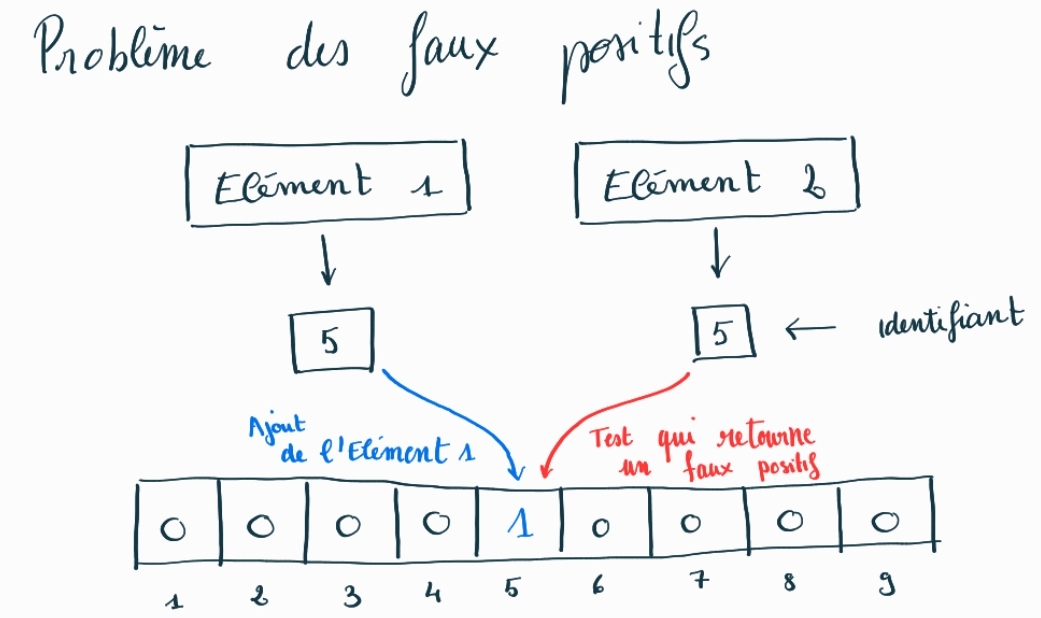 Problème des faux positifs
Elément 1
Elément 2
5
5
← identifiant
Ajout
de l'Elément 1
Test qui retourne
un faux positif
0 0 0 0 1 0 0 0 0
1 2 3 4 5 6 7 8 9